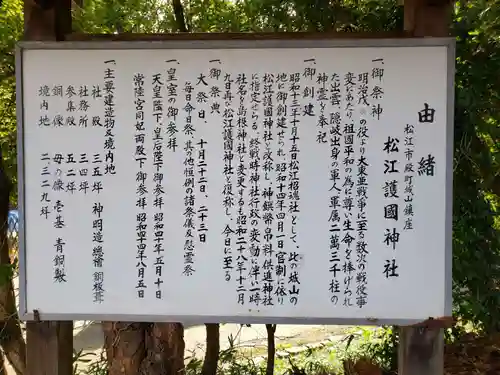 由緒
松江市殿町城山鎮座
松江護國神社
一、御祭神
明治戊辰の役より大東亜戦争に至る数次の戦役事
変にあたり、祖國平和の為に尊い生命を捧げられ
た出雲、隠岐出身の軍人、軍属二萬三千柱の
神霊を奉祀
一、御創建
昭和十三年十月十五日松江招魂社として、此の城山の
地に御創建せられ、昭和十四年四月一日官制に依り
松江護國神社と改称し、神饌幣帛料供進神社
に指定せらる。終戦時神社行政の変動に伴い一時
社名を島根神社と変更するも昭和二十八年十二月
九日再び松江護國神社と復称し、今日に至る
一、御祭典
大祭日、十月二十二日、二十三日
毎日命日祭、其の他恒例の諸祭儀及び慰霊祭
一、皇室の御参拝
天皇陛下、皇后陛下御参拝 昭和四十年五月十日
常陸宮同妃両殿下御参拝 昭和四十四年八月五日
一、主要建造物及境内地
社殿 三五坪 神明造總檜銅板葺
社務所 三四坪
参集殿 五四坪
銅像 母の像 壱基 青銅製
境内地 二、三二九坪